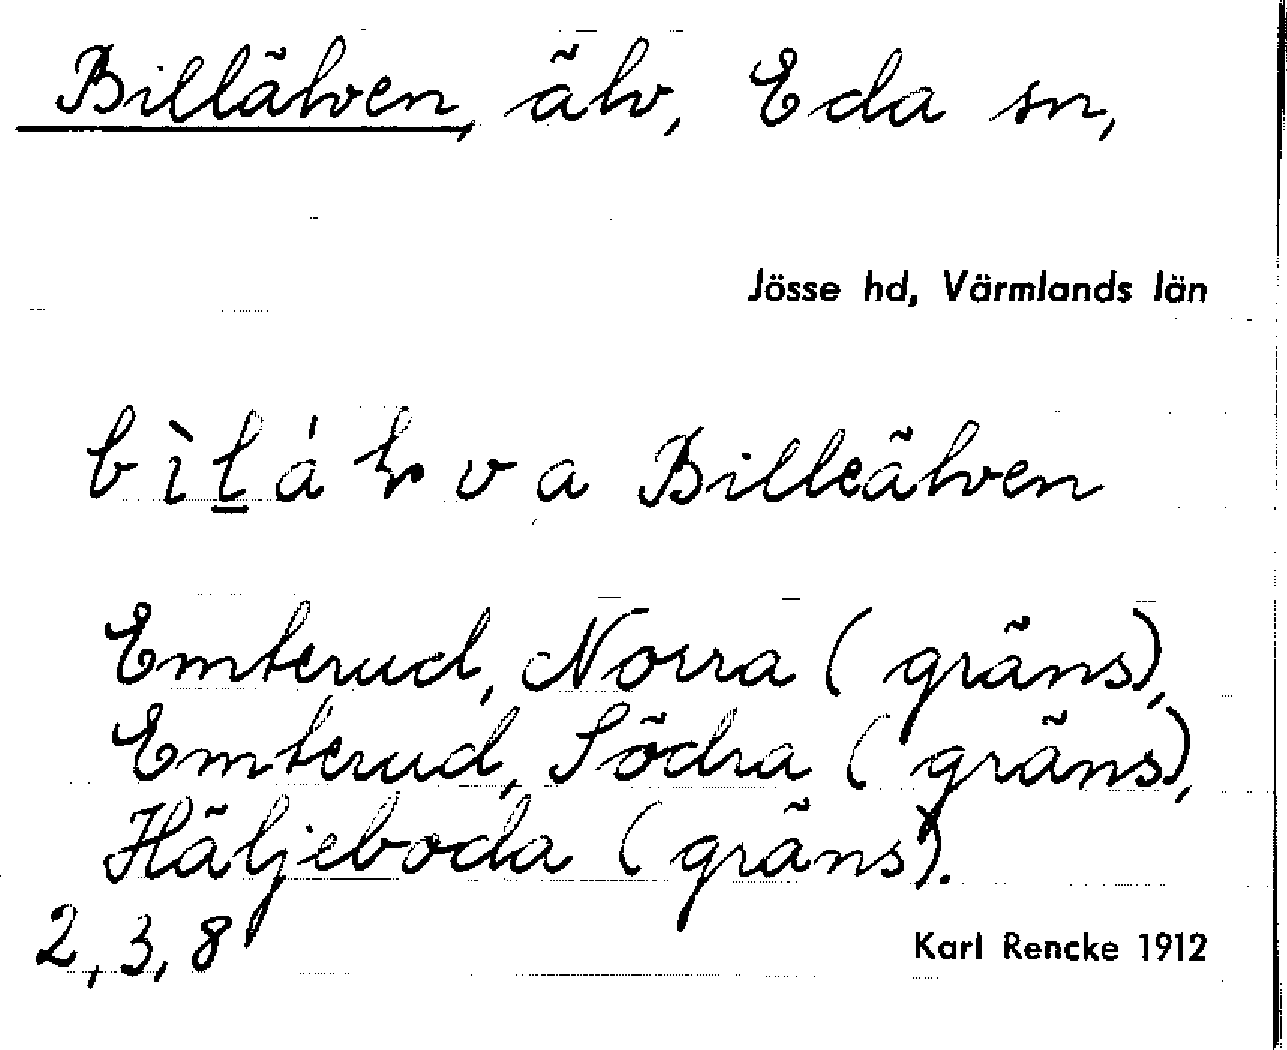 Billälven, älv, Eda sn,
Jösse hd, Värmlands län
Billeälven
Emterud, Norra (gräns),
Emterud, Södra (gräns),
Häljeboda (gräns).
2, 3, 8
Karl Rencke 1912